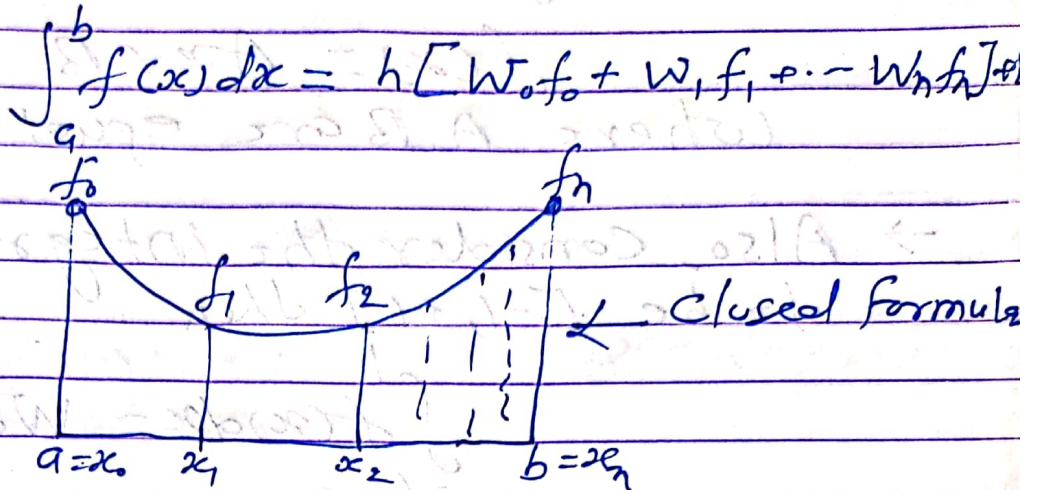 ∫ₐᵇ f(x) dx = h[W₀f₀ + W₁f₁ + ·-- Wₙfₙ] +
f₀ fₙ
f₁ f₂
Closed formula
a = x₀ x₁ x₂ b = xₙ